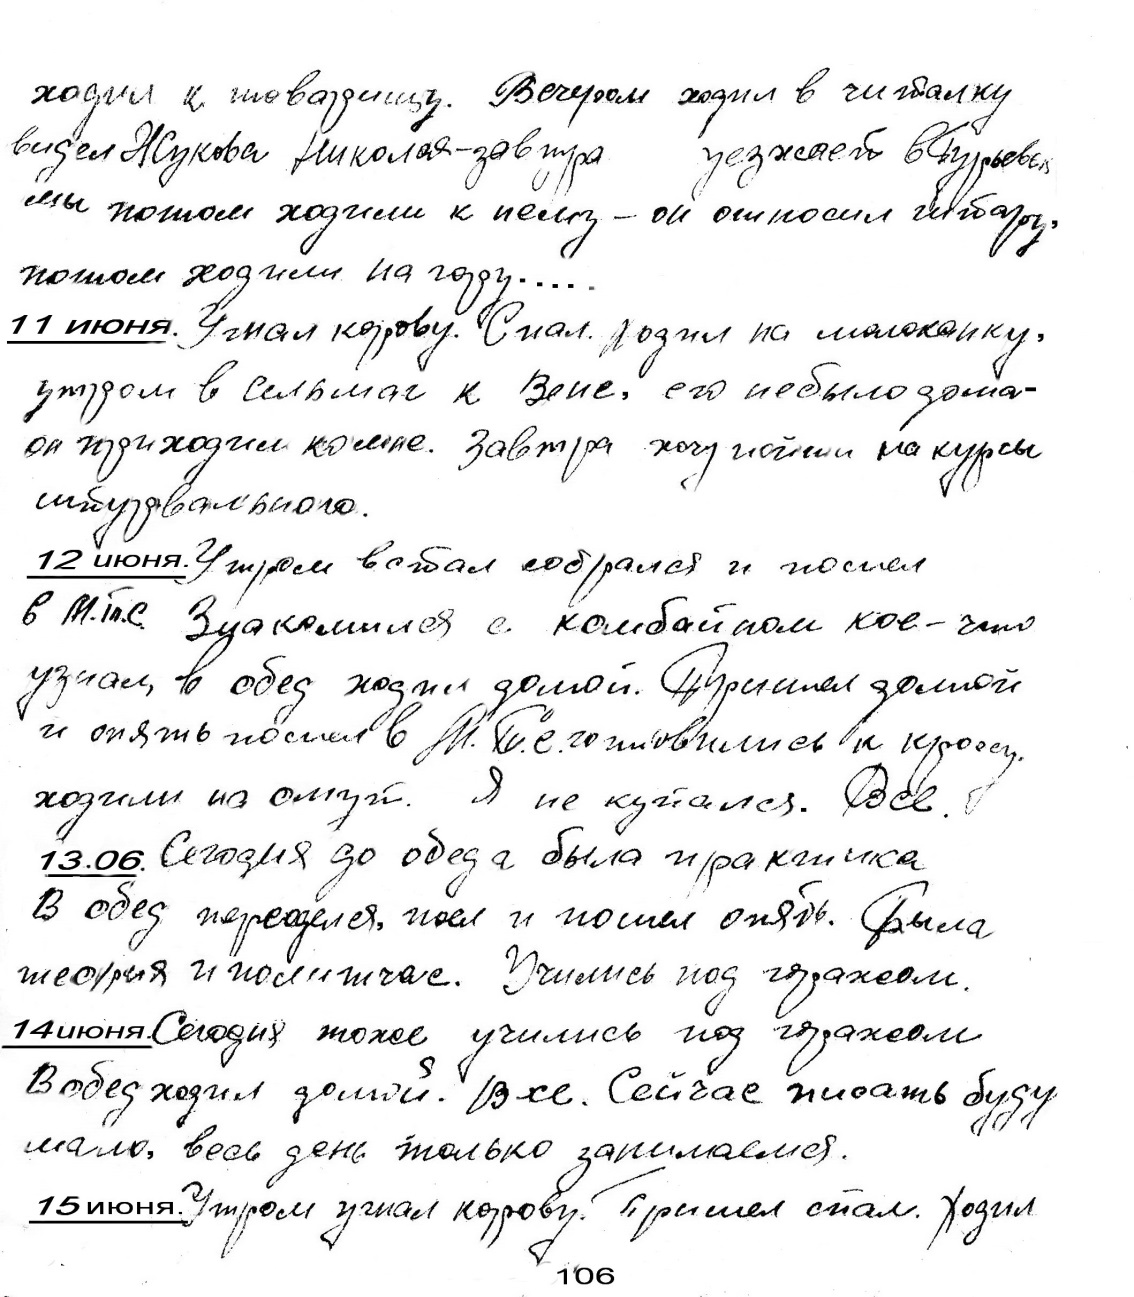 ходил к товарищу. Вечером ходил в читалку
видел Жукова Николая-завтра уезжает в Гурьевск
мы потом ходили к нему - он относил гитару,
потом ходили на гору.....
11 июня. Угнал корову. Спал. Ходил на молоканку,
утром в сельмаг к Вене, его небыло дома-
он приходил ко мне. Завтра хочу пойти на курсы
штурвального.
12 июня. Утром встал собрался и пошел
в М.Т.С. Знакомился с комбайном кое-что
узнал, в обед ходил домой. Пришел домой
и опять пошел в М.Т.С. готовились к кроссу.
ходили на омут. Я не купался. Все.
13.06. Сегодня до обеда была практика
В обед переоделся, поел и пошел опять. Была
теория и политчас. Учились под гаражом.
14 июня. Сегодня тоже учились под гаражом
В обед ходил домой. Все. Сейчас писать буду
мало, весь день только занимаемся.
15 июня. Утром угнал корову. Пришел спал. Ходил
106